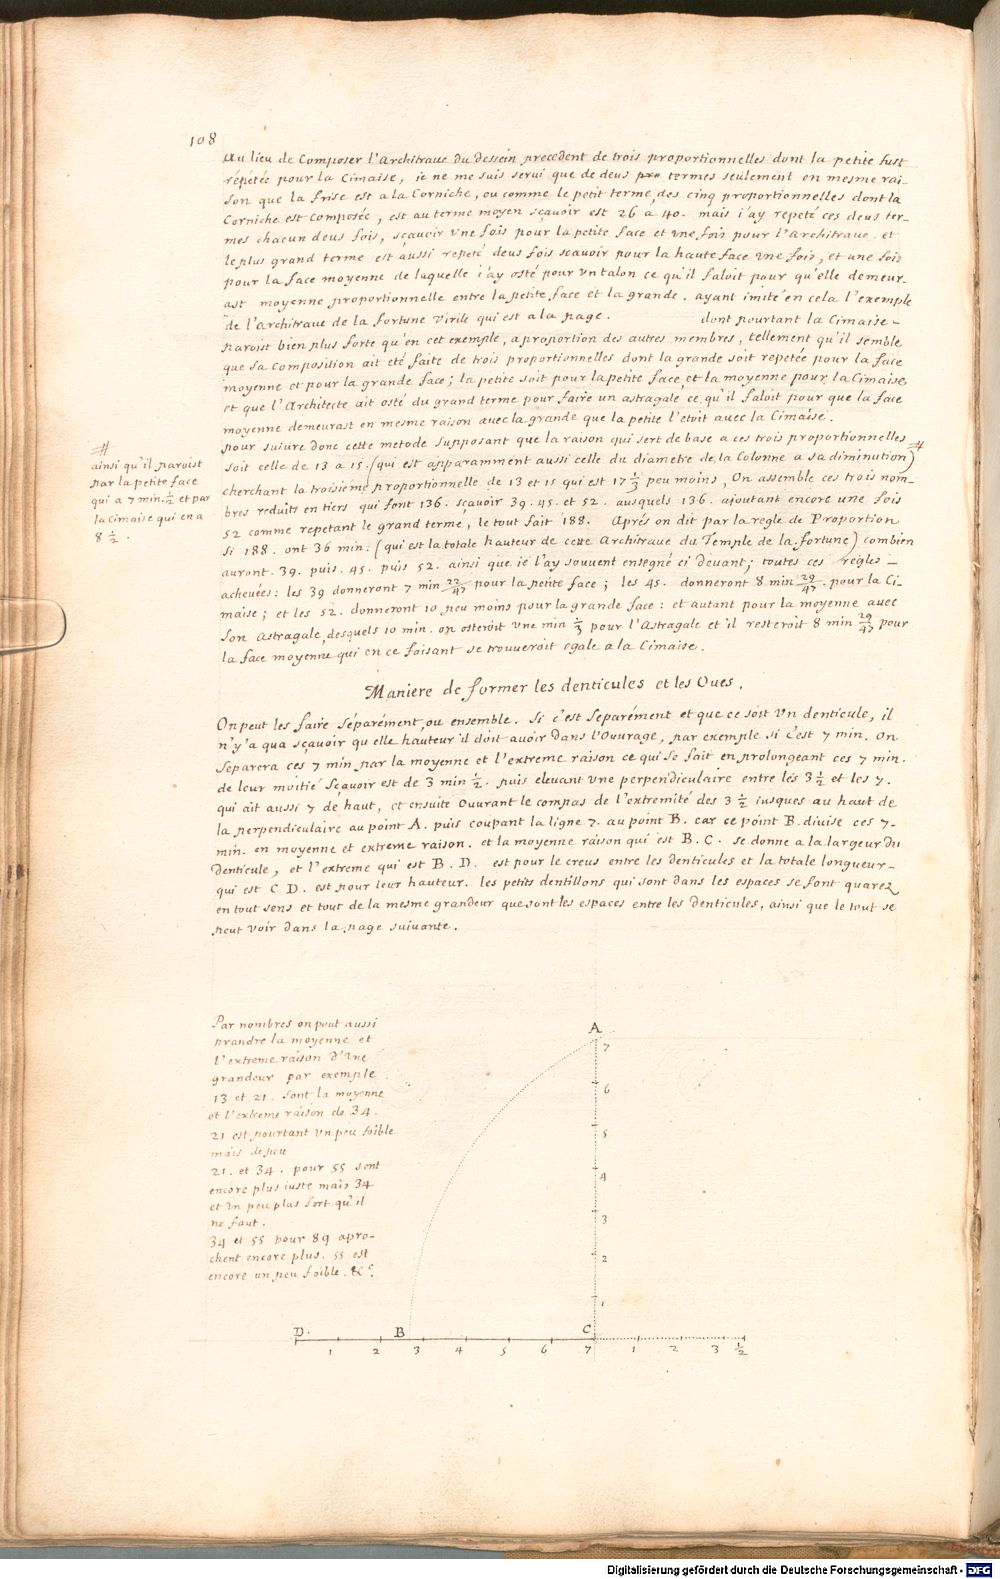 108
Au lieu de Composer l'Architraue du dessein precedent de trois proportionnelles dont la petite fust
répétée pour la Cimaise, ie ne me suis serui que de deus termes seulement en mesme rai-
son que la frise est a la Corniche, ou comme le petit terme, des cinq proportionnelles dont la
Corniche est composée, est au terme moyen sçauoir est 26 a 40. mais i'ay repeté ces deus ter-
mes chacun deus fois, sçauoir vne fois pour la petite face et vne fois pour l'Architraue. et
le plus grand terme est aussi repeté deus fois scauoir pour la haute face vne fois, et une fois
pour la face moyenne de laquelle i'ay osté pour vn talon ce qu'il faloit pour qu'elle demeur-
ast moyenne proportionnelle entre la petite face et la grande. ayant imité en cela l'exemple
de l'Architraue de la fortune Virile qui est a la page. dont pourtant la Cimaise -
paroist bien plus forte qu'en cet exemple, a proportion des autres membres, tellement qu'il semble
que sa composition ait eté faite de trois proportionnelles dont la grande soit repetée pour la face
moyenne et pour la grande face; la petite soit pour la petite face, et la moyenne pour la Cimaise,
et que l'Architecte ait osté du grand terme pour faire un astragale ce qu'il faloit pour que la face
moyenne demeurast en mesme raison auec la grande que la petite l'etoit auec la Cimaise.
pour suiure donc cette metode supposant que la raison qui sert de base a ces trois proportionnelles #
soit celle de 13 a 15. (qui est apparamment aussi celle du diametre de la Colonne a sa diminution)
cherchant la troisieme proportionnelle de 13 et 15 qui est 17 1/3 peu moins, On assemble ces trois nom-
bres reduits en tiers qui font 136. sçauoir 39. 45. et 52. ausquels 136. ajoutant encore une fois
52 comme repetant le grand terme, le tout fait 188. Aprés on dit par la regle de Proportion
Si 188. ont 36 min. (qui est la totale hauteur de cette Architraue du Temple de la fortune) combien
auront. 39. puis 45. puis 52. ainsi que ie l'ay souuent enseigné ci deuant; toutes ces regles -
acheuées: les 39 donneront 7 min 22/47 pour la petite face; les 45. donneront 8 min 29/47. pour la Ci-
maise; et les 52. donneront 10 peu moins pour la grande face: et autant pour la moyenne auec
son Astragale, desquels 10 min. on osteroit vne min 1/3 pour l'Astragale et il resteroit 8 min 29/47 pour
la face moyenne qui en ce faisant se trouueroit egale a la Cimaise.
#
ainsi qu'il paroist
par la petite face
qui a 7 min. 1/2 et par
la Cimaise qui en a
8 1/2.
Maniere de former les denticules et les Oues.
On peut les faire séparément, ou ensemble. si c'est separément et que ce soit vn denticule, il
n'y a qua sçauoir qu elle hauteur il doit auoir dans l'Ouurage, par exemple si c'est 7 min. On
separera ces 7 min par la moyenne et l'extreme raison ce qui se fait en prolongeant ces 7 min.
de leur moitié sçauoir est de 3 min 1/2. puis eleuant vne perpendiculaire entre les 3 1/2 et les 7.
qui ait aussi 7 de haut, et ensuite ouurant le compas de l'extremité des 3 1/2 iusques au haut de
la perpendiculaire au point A. puis coupant la ligne 7. au point B. car ce point B. diuise ces 7-
min. en moyenne et extreme raison. et la moyenne raison qui est B. C. se donne a la largeur du
denticule, et l'extreme qui est B. D. est pour le creus entre les denticules et la totale longueur-
qui est C D. est pour leur hauteur. les petits dentillons qui sont dans les espaces se font quarez
en tout sens et tout de la mesme grandeur que sont les espaces entre les denticules, ainsi que le tout se
peut voir dans la page suiuante.
Par nombres on peut aussi
prandre la moyenne et
l'extreme raison d'vne
grandeur par exemple
13 et 21. sont la moyenne
et l'extreme raison de 34.
21 est pourtant vn peu foible
mais de peu
21. et 34. pour 55 sont
encore plus iuste mais 34
et vn peu plus fort qu'il
ne faut.
34 et 55 pour 89 apro-
chent encore plus. 55 est
encore un peu foible. &c.
A
7
6
5
4
3
2
1
D. B C
1 2 3 4 5 6 7 1 2 3 1/2
Digitalisierung gefördert durch die Deutsche Forschungsgemeinschaft - DFG